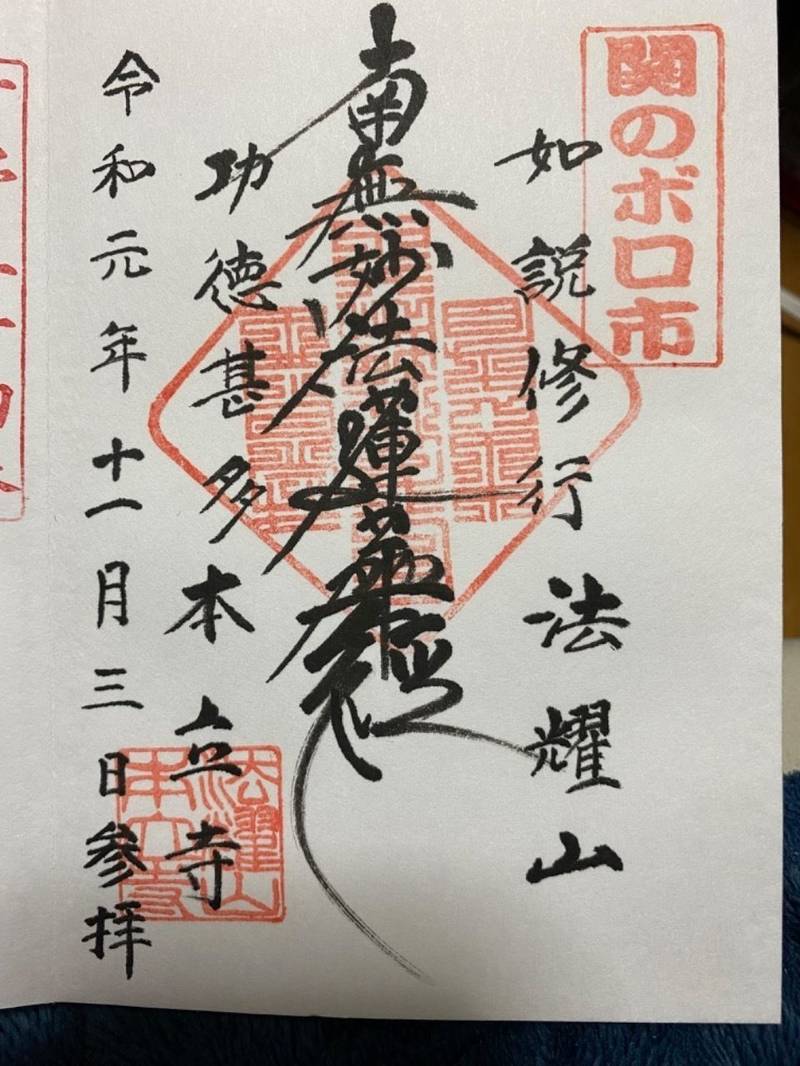 関のボロ市
如説修行 法耀山
南無妙法蓮華経
功徳甚多 本立寺
令和元年十一月三日参拝
法耀山
本立寺